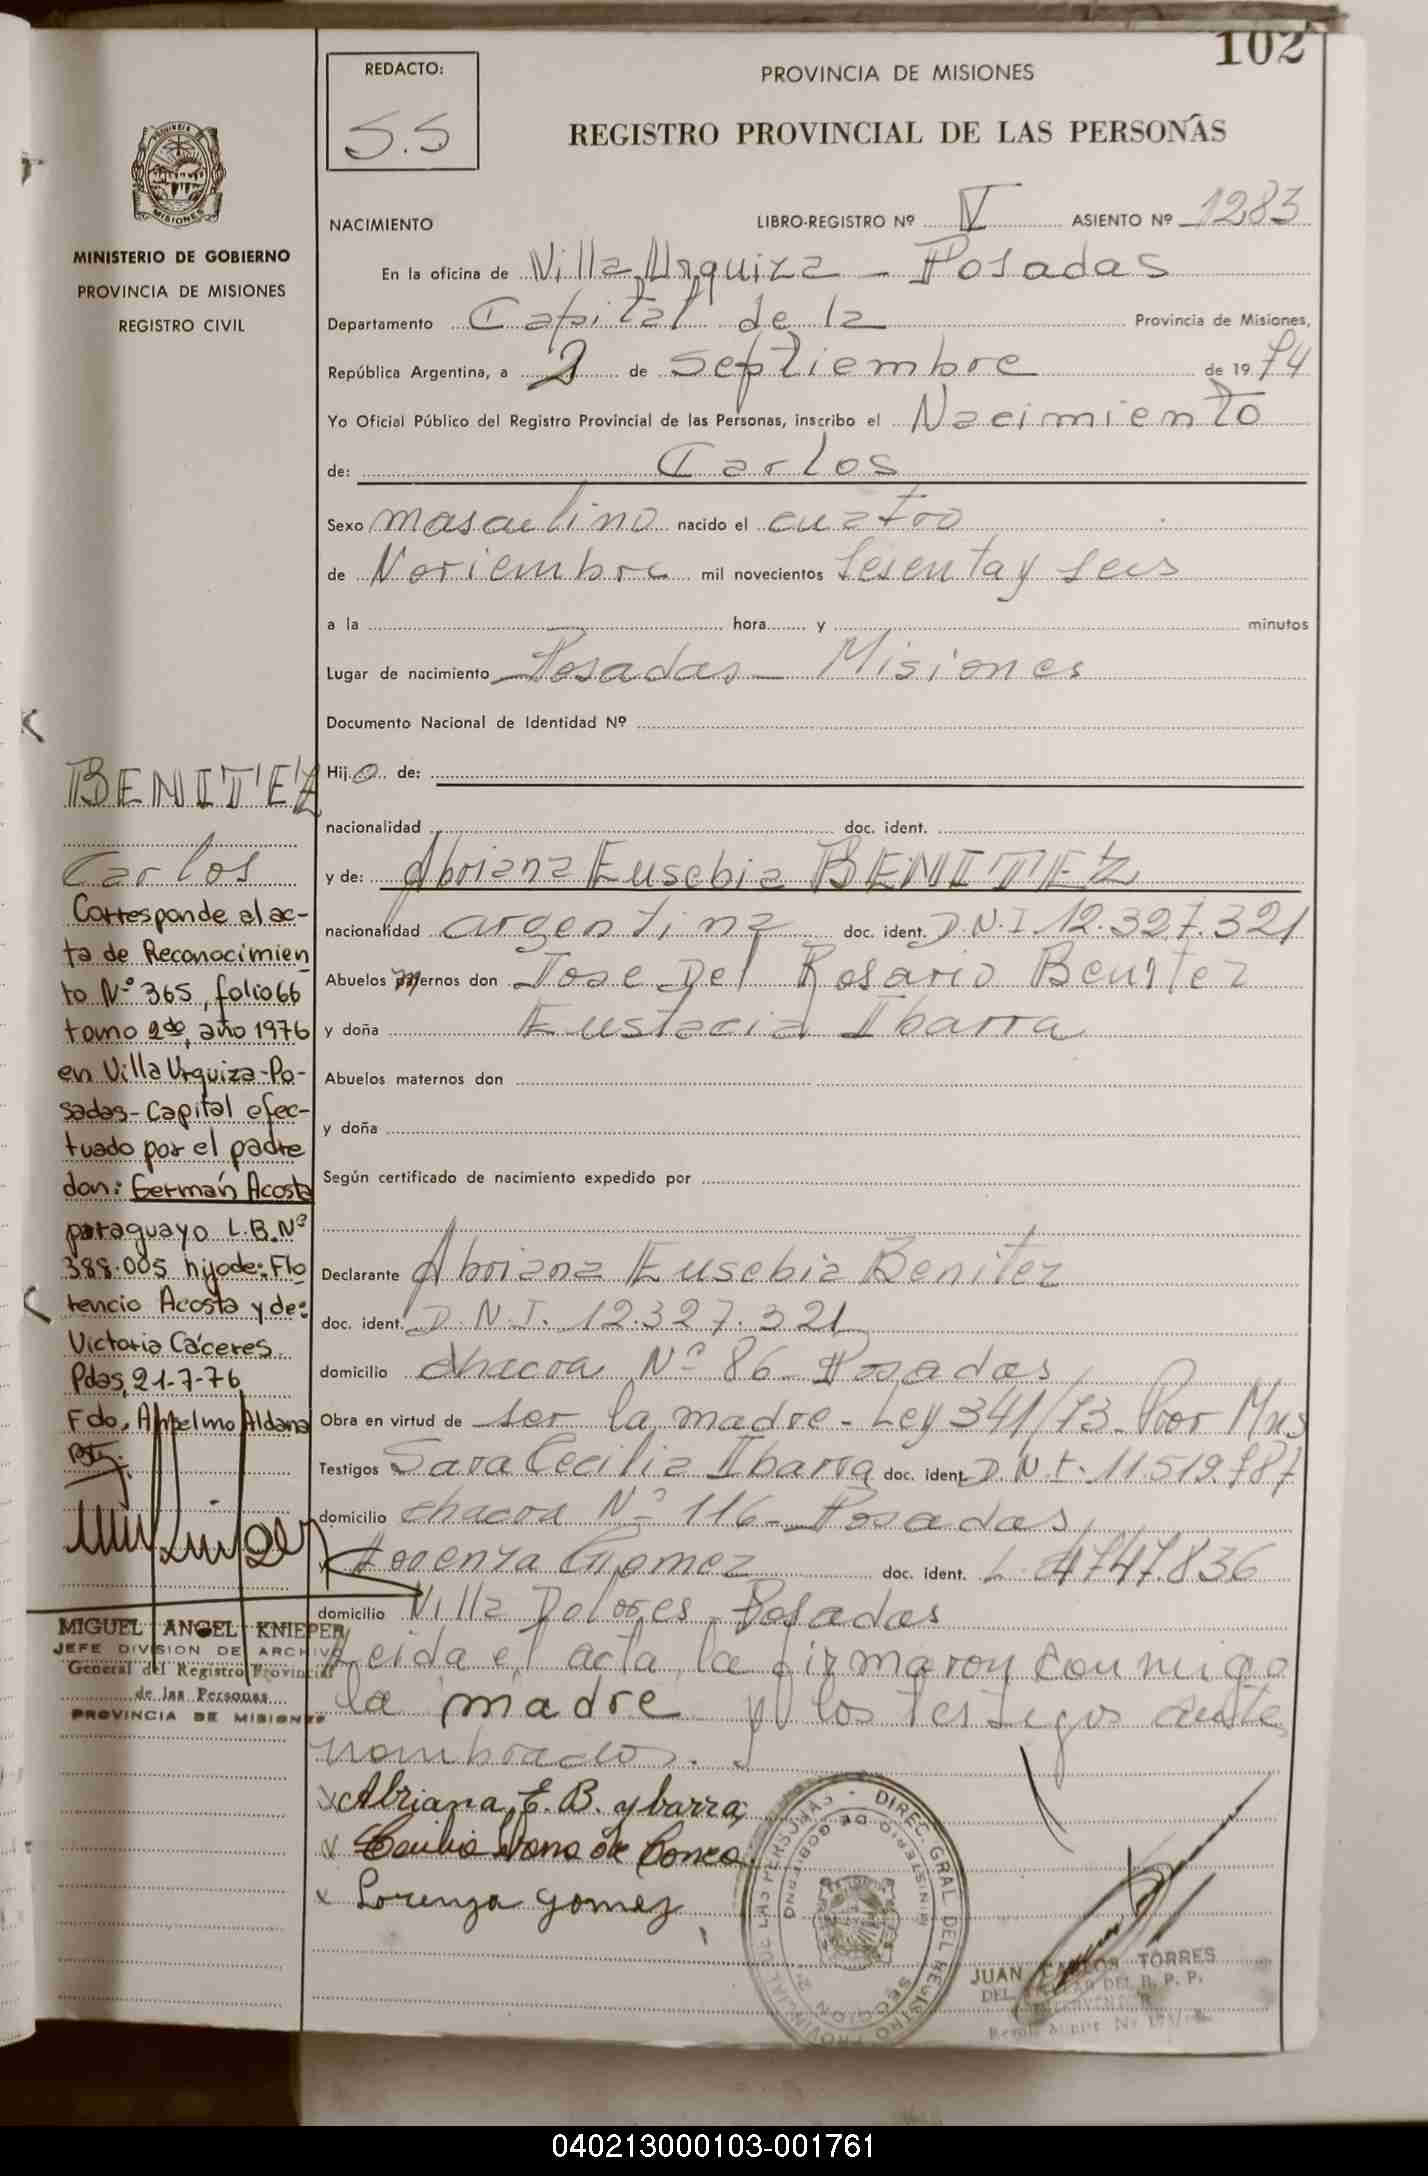 102
REDACTO:
S.S
PROVINCIA DE MISIONES
REGISTRO PROVINCIAL DE LAS PERSONAS
PROVINCIA DE
MISIONES
MINISTERIO DE GOBIERNO
PROVINCIA DE MISIONES
REGISTRO CIVIL
NACIMIENTO LIBRO-REGISTRO Nº V ASIENTO Nº 1283
En la oficina de Villa Urquiza - Posadas
Departamento Capital de la Provincia de Misiones,
República Argentina, a 2 de septiembre de 1974
Yo Oficial Público del Registro Provincial de las Personas, inscribo el Nacimiento
de: Carlos
Sexo masculino nacido el cuatro
de Noviembre mil novecientos sesenta y seis
a la hora y minutos
Lugar de nacimiento Posadas - Misiones
Documento Nacional de Identidad Nº
Hijo de:
nacionalidad doc. ident.
y de: Abriana Eusebia BENITEZ
nacionalidad argentina doc. ident. D.N.I 12.327.321
Abuelos maternos don Jose Del Rosario Benitez
y doña Eustacia Ibarra
Abuelos maternos don
y doña
Según certificado de nacimiento expedido por
Declarante Abriana Eusebia Benitez
doc. ident. D.N.I. 12.327.321
domicilio chacra Nº 86 - Posadas
Obra en virtud de ser la madre - Ley 341/73 - Por Mus
Testigos Sara Cecilia Ibarra doc. ident. D.N.I. 11.519.787
domicilio chacra Nº 116 - Posadas
y Lorenza Gomez doc. ident. L. 4747.836
domicilio Villa Dolores - Posadas
Leida el acta, la firmaron conmigo
la madre y los testigos ante
nombrados.
x Abriana E. B. ybarra
x Lorenza gomez
BENITEZ
Carlos
Corresponde al ac-
ta de Reconocimien
to Nº 365, folio 66
tomo 2do, año 1976
en Villa Urquiza-Po-
sadas-Capital efec-
tuado por el padre
don: Germán Acosta
paraguayo L.B.Nº
388.005 hijo de: Flo
rencio Acosta y de:
Victoria Cáceres
Pdas, 21-7-76
Fdo, Anselmo Aldana
MIGUEL ANGEL KNIEPER
JEFE DIVISION DE ARCHIVO
General del Registro Provincial
de las Personas
PROVINCIA DE MISIONES
DIREC. GRAL. DEL REGISTRO PROVINCIAL DE LAS PERSONAS
MINISTERIO DE GOBIERNO
SECCION 2ª
JUAN CARLOS TORRES
040213000103-001761